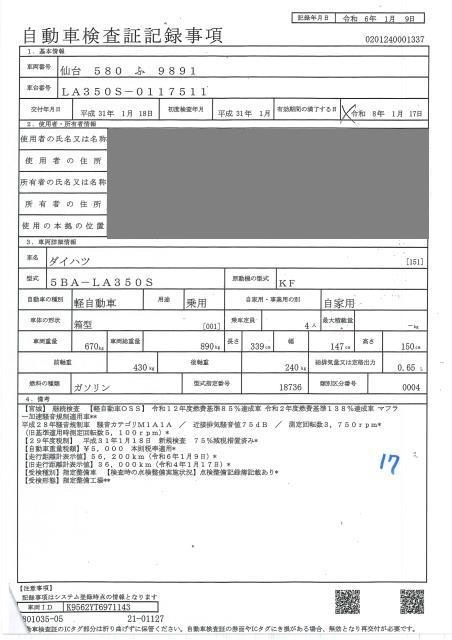 記録年月日 令和 6年 1月 9日
自動車検査証記録事項 0201240001337
1．基本情報
車両番号 仙台 580 ふ 9891
車台番号 LA350S-0117511
交付年月日 平成 31年 1月 18日 初度検査年月 平成 31年 1月 有効期間の満了する日 令和 8年 1月 17日
2．使用者・所有者情報
使用者の氏名又は名称
使用者の住所
所有者の氏名又は名称
所有者の住所
使用の本拠の位置
3．車両詳細情報
車名 ダイハツ [151]
型式 5BA-LA350S 原動機の型式 KF
自動車の種別 軽自動車 用途 乗用 自家用・事業用の別 自家用
車体の形状 箱型 [001] 乗車定員 4人 最大積載量 -kg
車両重量 670kg 車両総重量 890kg 長さ 339cm 幅 147cm 高さ 150cm
前軸重 430kg 後軸重 240kg 総排気量又は定格出力 0.65 L
燃料の種類 ガソリン 型式指定番号 18736 類別区分番号 0004
4．備考
【宮城】 継続検査 【軽自動車OSS】 令和12年度燃費基準85％達成車 令和2年度燃費基準138％達成車 マフラ
ー加速騒音規制適用車**
平成28年騒音規制車 騒音カテゴリM1A1A ／ 近接排気騒音値75dB ／ 測定回転数3,750rpm**
(旧基準適用時測定回転数5,100rpm)*
【29年度税制】 平成31年1月18日 新規検査 75％減税措置済み*
【自動車重量税額】¥5,000 本則税率適用*
【走行距離計表示値】56,200km（令和6年1月9日）*
【旧走行距離計表示値】36,000km（令和4年1月17日）*
【受検種別】指定整備車 【検査時の点検整備実施状況】点検整備記録簿記載あり*
【受検形態】指定整備工場**
17
【注意事項】
記録事項はシステム登録時点の情報となります
車両ID K9562YT6971143
801035-05 21-01127
自動車検査証のICタグ部分は折り曲げずに保管ください。自動車検査証の券面やICタグにき損がある場合、無効となり再交付が必要です。